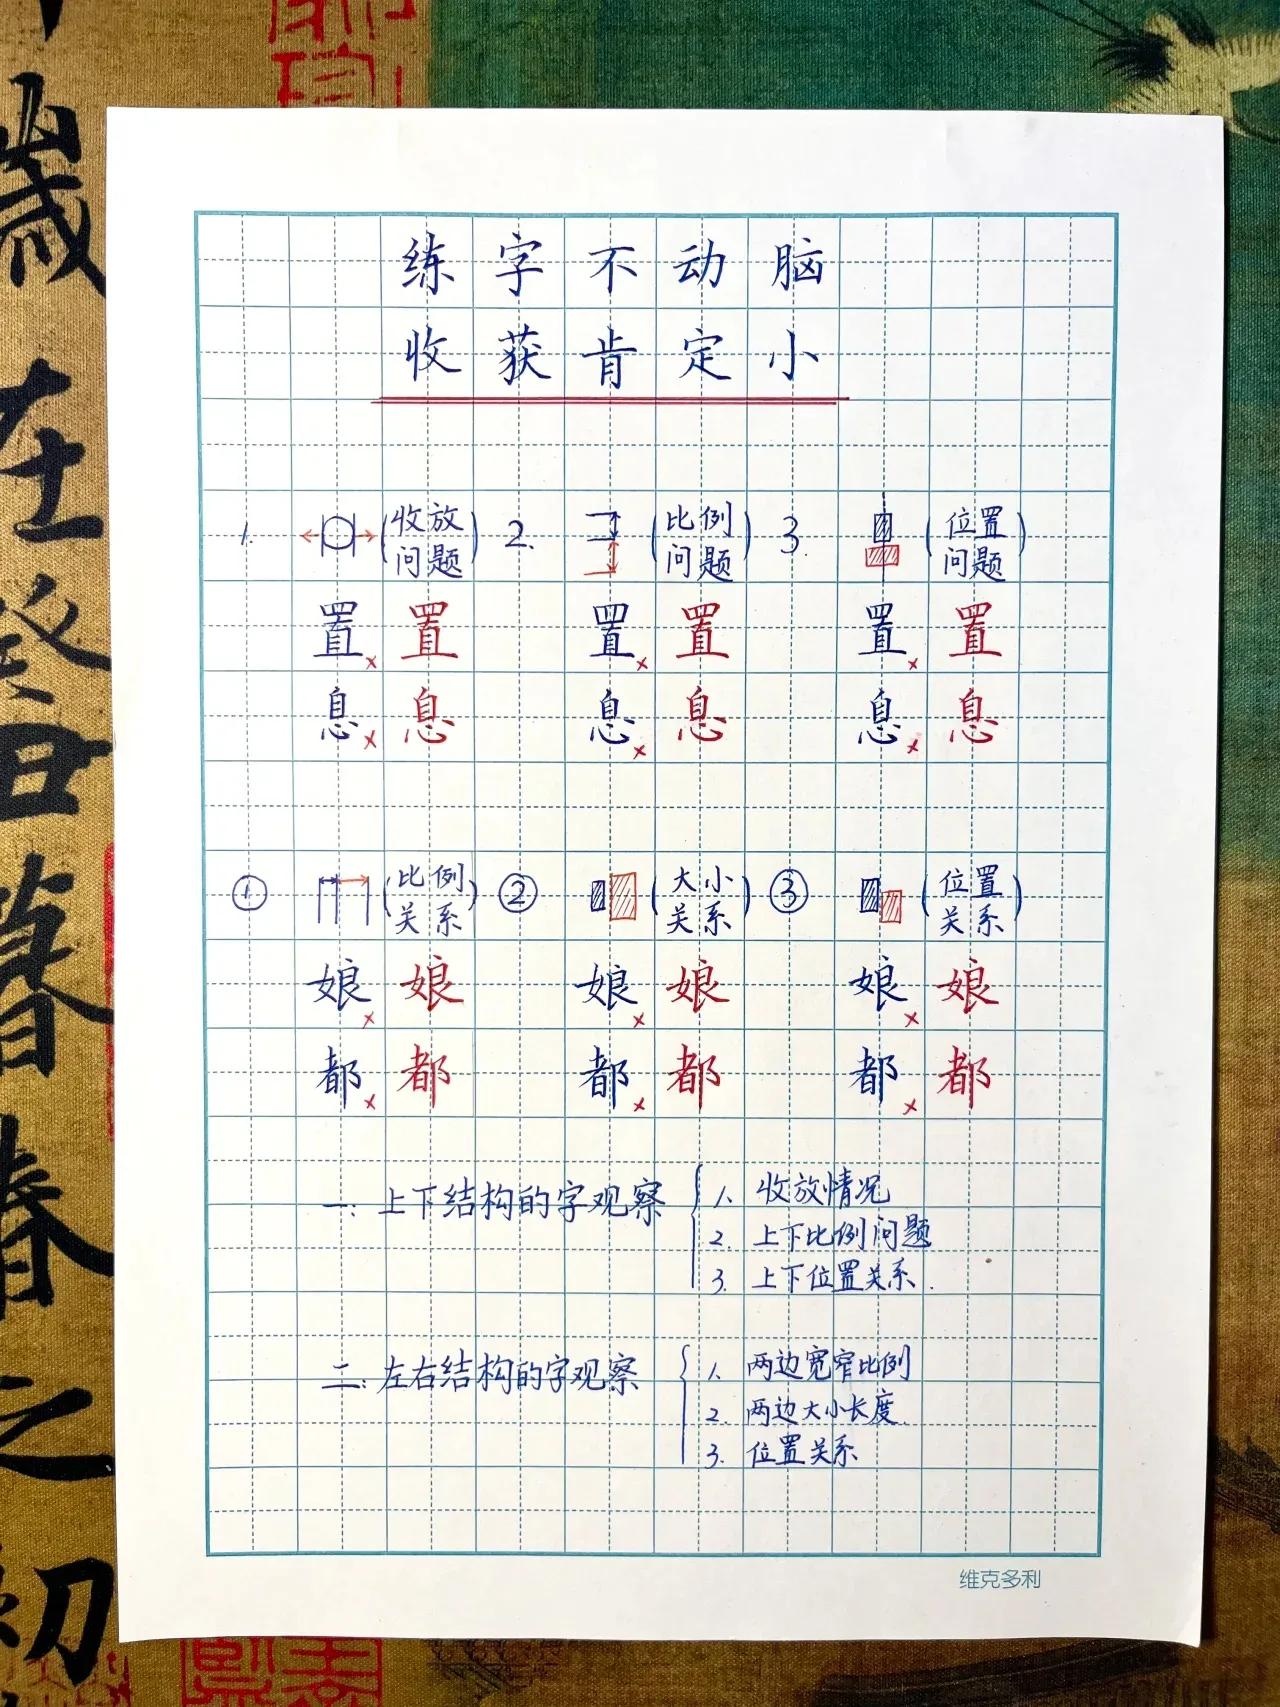 练字不动脑
收获肯定小
1. (收放问题) 2. (比例问题) 3. (位置问题)
置× 置 置× 置 置× 置
息× 息 息× 息 息× 息
① (比例关系) ② (大小关系) ③ (位置关系)
娘× 娘 娘× 娘 娘× 娘
都× 都 都× 都 都× 都
一:上下结构的字观察
1. 收放情况
2. 上下比例问题
3. 上下位置关系.
二:左右结构的字观察
1. 两边宽窄比例
2. 两边大小长度.
3. 位置关系
维克多利
歲
在
癸
丑
暮
春
之
初